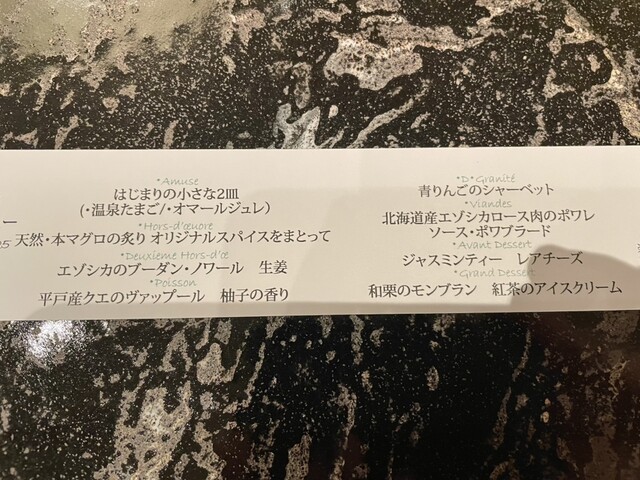 •Amuse
はじまりの小さな2皿
(・温泉たまご/・オマールジュレ)
•Hors-d'œuore
天然・本マグロの炙り オリジナルスパイスをまとって
•Deuxieme Hors-d'œ
エゾシカのブーダン・ノワール 生姜
•Poisson
平戸産クエのヴァップール 柚子の香り
•D•Granité
青りんごのシャーベット
•Viandes
北海道産エゾシカロース肉のポワレ
ソース・ポワブラード
•Avant Dessert
ジャスミンティー レアチーズ
•Grand Dessert
和栗のモンブラン 紅茶のアイスクリーム